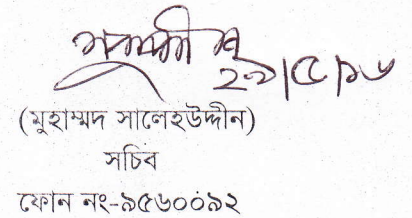 ২৯/৫/১৬
(মুহাম্মদ সালেহউদ্দীন)
সচিব
ফোন নং-৯৫৬০০৯২